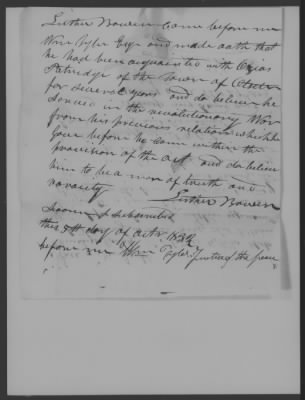 Luther Bowen Came before me
Wm Tyler Esqr and made oath that
he had been acquainted with Ozias
of the Town of
for several years and do believe he
Served in the revolutionary War
from his previous relation which he
gave before he came within the
provision of the act and do believe
him to be a man of truth and
varacity Luther Bowen
Sworn & subscribed
this 5th day of Octr 1832
before me Wm Tyler Justice of the peace